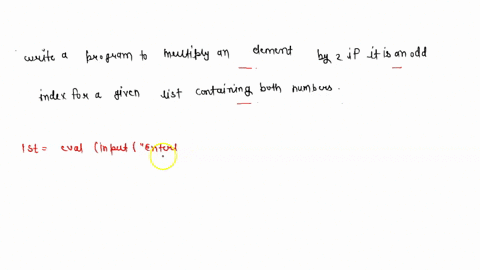 write a program to multiply an element by 2 if it is an odd
index for a given list containing both numbers.
lst = eval (input ("Enter